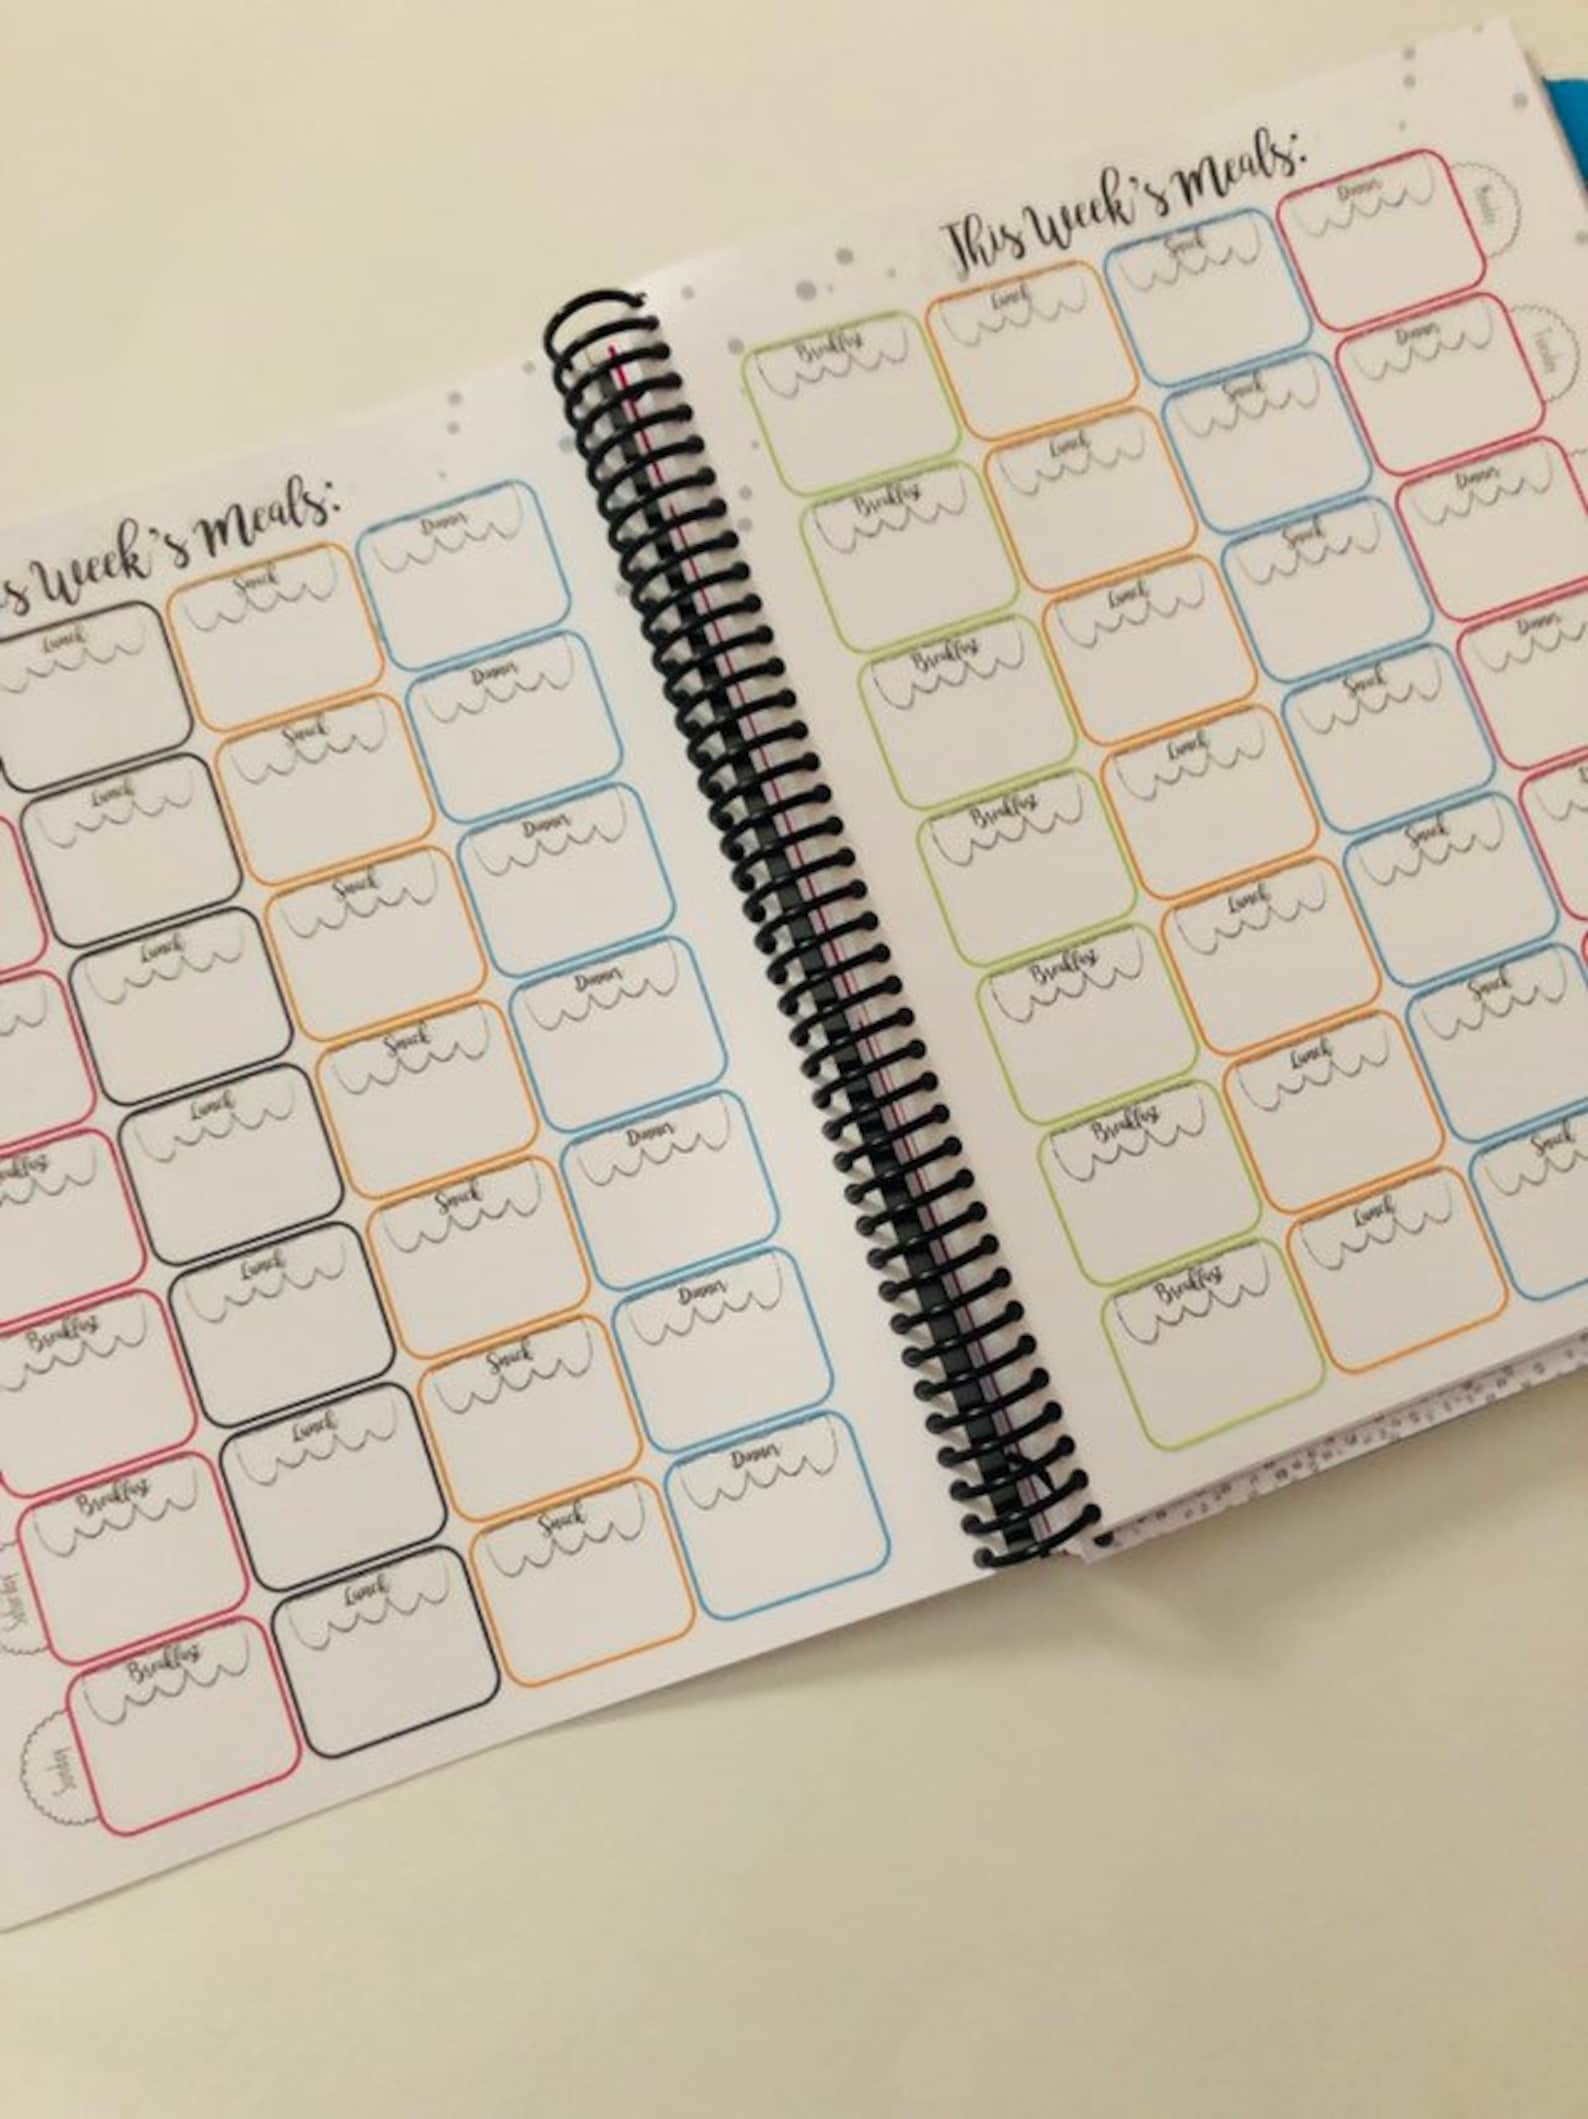 s Week's Meals:
Lunch Snack Dinner
Lunch Snack Dinner
Lunch Snack Dinner
akfast Lunch Snack Dinner
Breakfast Lunch Snack Dinner
Saturday Breakfast Lunch Snack Dinner
Sunday Breakfast Lunch Snack Dinner
This Week's Meals:
Breakfast Lunch Snack Dinner Monday
Breakfast Lunch Snack Dinner Tuesday
Breakfast Lunch Snack Dinner
Breakfast Lunch Snack Dinner
Breakfast Lunch Snack
Breakfast Lunch Snack
Breakfast Lunch Snack